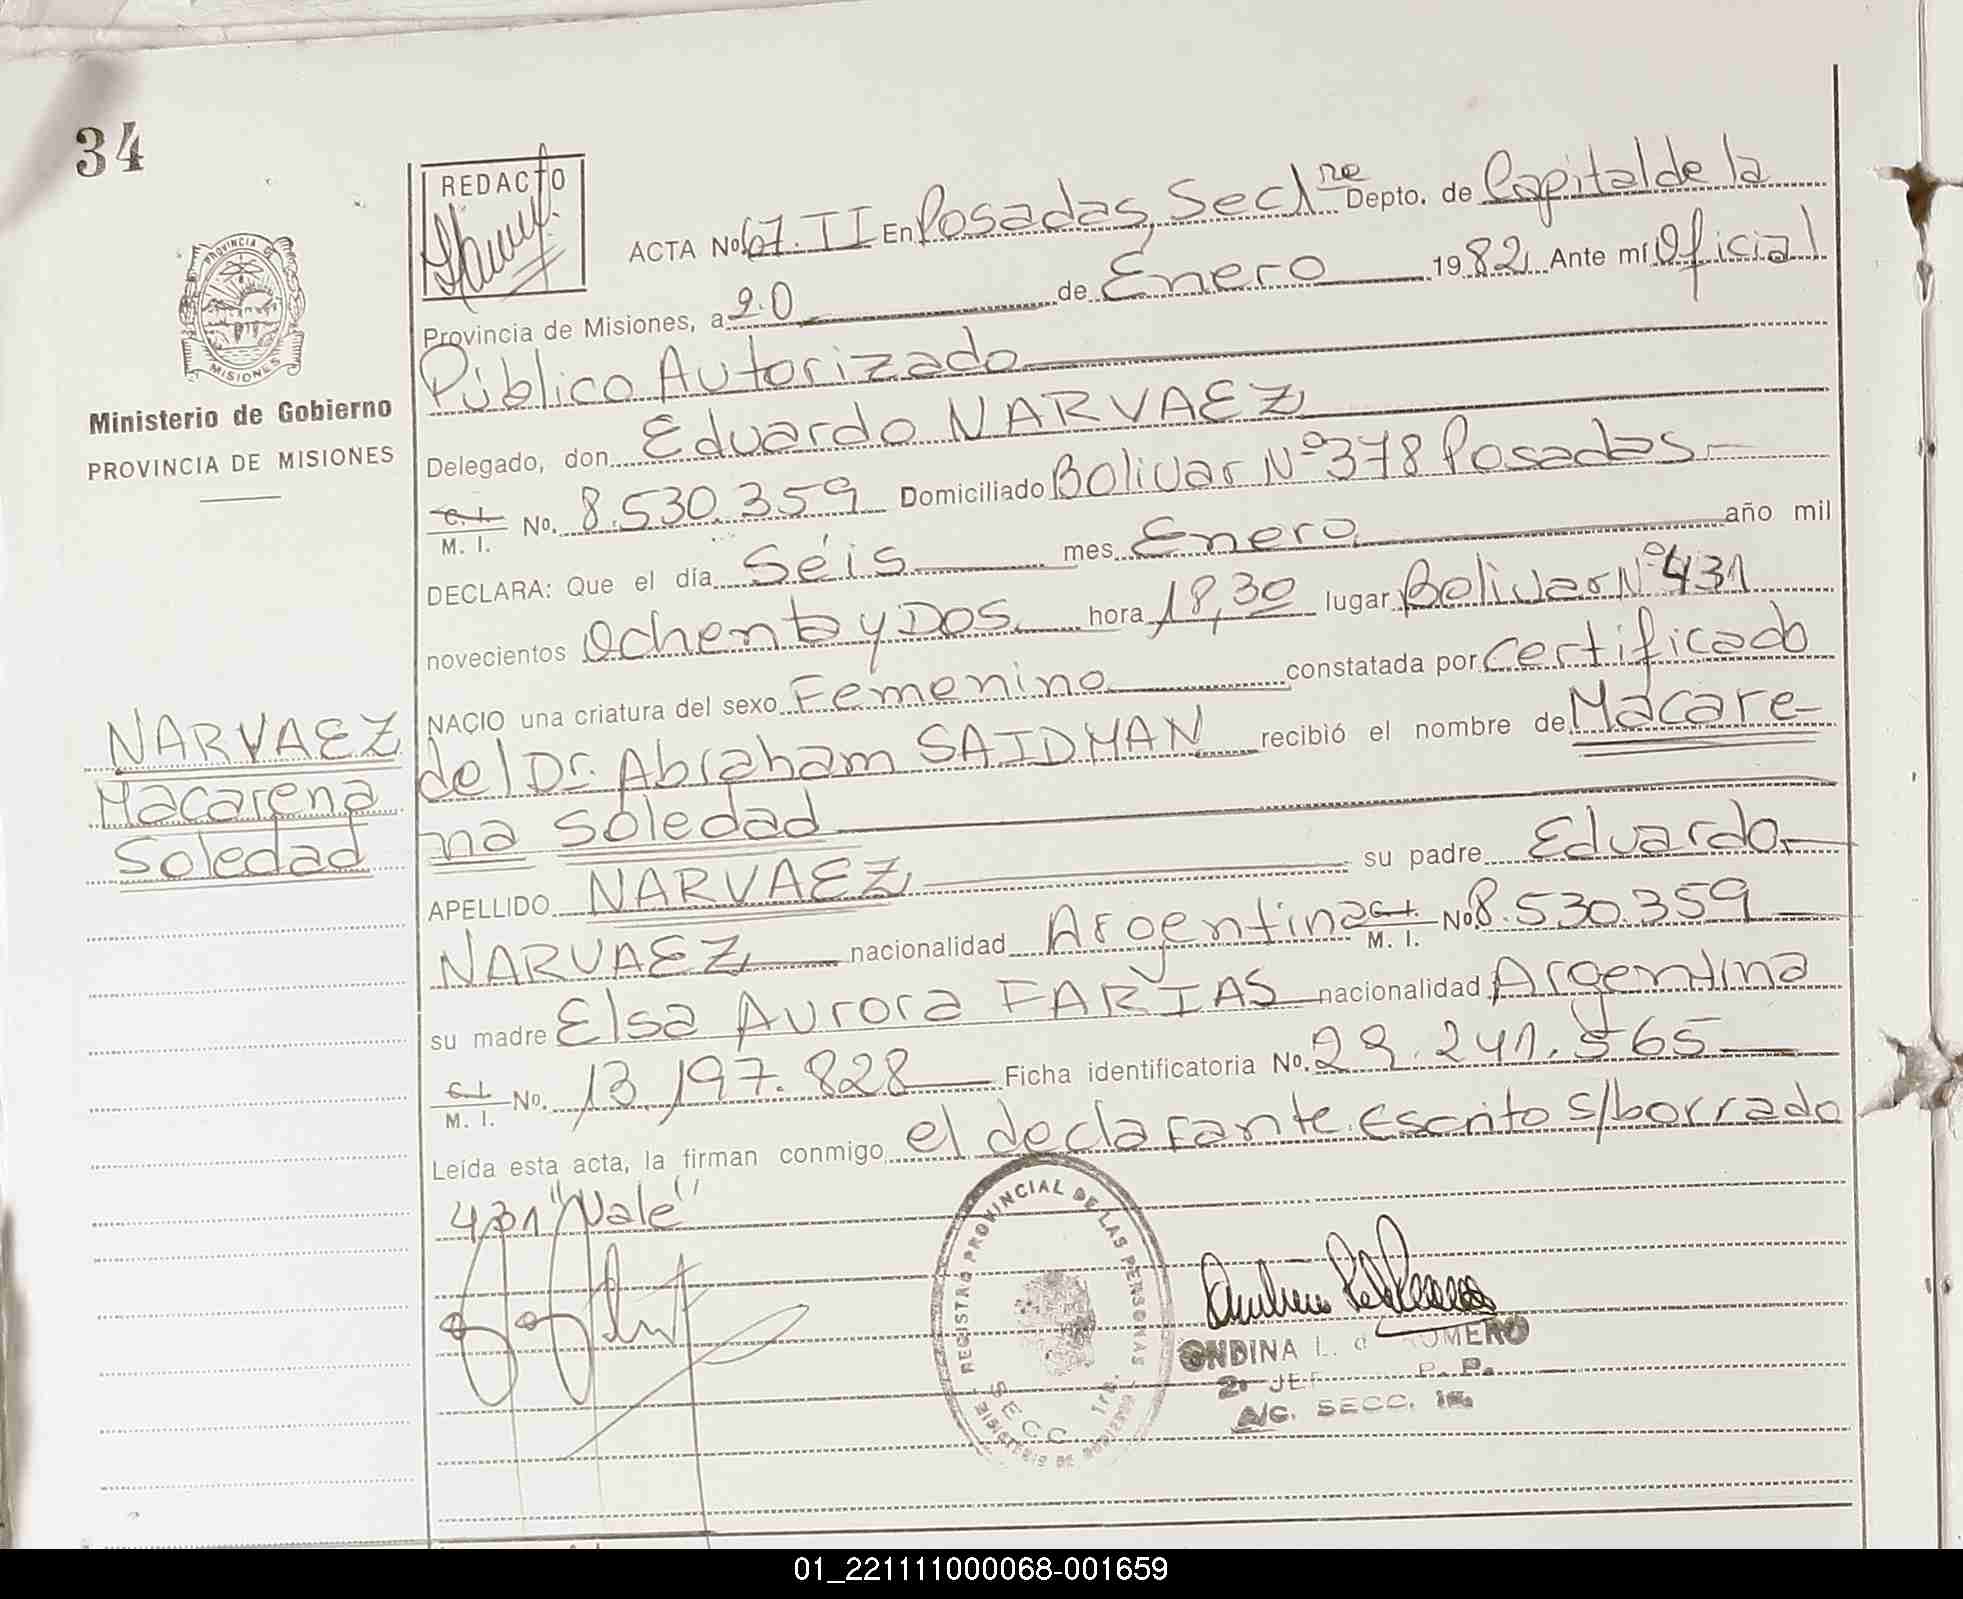 34
REDACTO
ACTA No 67. II En Posadas, Sec 1re Depto. de Capital de la
Provincia de Misiones, a 20 de Enero 1982, Ante mí Oficial
Público Autorizado
Delegado, don Eduardo NARVAEZ
C. I. M. I. No. 8.530.359 Domiciliado Bolivar Nº 378 Posadas -
DECLARA: Que el día Séis mes Enero año mil
novecientos Ochenta y Dos hora 18,30 lugar Bolivar Nº 431
NACIO una criatura del sexo Femenino constatada por Certificado
del Dr. Abraham SAIDMAN recibió el nombre de Macare-
na Soledad
APELLIDO NARVAEZ su padre Eduardo
NARVAEZ nacionalidad Argentina C. I. M. I. No. 8.530.359
su madre Elsa Aurora FARIAS nacionalidad Argentina
C. I. M. I. No. 13.197.828 Ficha identificatoria No. 29.241.565
Leída esta acta, la firman conmigo el declarante. Escrito s/borrado
431 "Vale"
PROVINCIA DE MISIONES
Ministerio de Gobierno
PROVINCIA DE MISIONES
NARVAEZ
Macarena
Soledad
REGISTRO PROVINCIAL DE LAS PERSONAS
SECC. 1ra.
MINISTERIO DE GOBIERNO
ONDINA L. d ROMERO
2º JEF R. P.
A/C. SECC. 1ª.
01_221111000068-001659